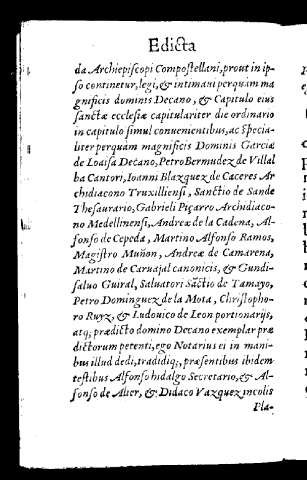 Edicta
da Archiepiscopi Compostellani, prout in ip-
so continetur, legi, & intimani perquám ma
gnificis dominis Decano, & Capitulo eius
sanctæ ecclesiæ capitulariter die ordinario
in capitulo simul conuenientibus, ac specia-
liter perquàm magnificis Dominis Garciæ
de Loaisa Decano, Petro Bermudez de Villal
ba Cantori, Ioanni Blazquez de Caceres Ar
chidiacono Truxilliensi, Sanctio de Sande
Thesaurario, Gabrieli Piçarro Archidiaco-
no Medellinensi, Andreæ de la Cadena, Al-
fonso de Cepeda, Martino Alfonso Ramos,
Magistro Muñon, Andreæ de Camarena,
Martino de Caruajal canonicis, & Gundi-
saluo Guiral, Saluatori Sãctio de Tamayo,
Petro Dominguez de la Mota, Christopho-
ro Ruyz, & Ludouico de Leon portionarijs,
atq; prædicto domino Decano exemplar præ
dictorum petenti, ego Notarius ei in mani-
bus illud dedi, tradidiq;, præsentibus ibidem
testibus Alfonso hidalgo Secretario, & Al-
fonso de Alter, & Didaco Vazquez incolis
Pla-